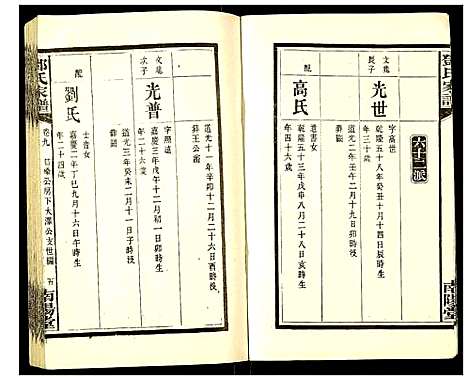 鄧氏家譜
六十二派
文龍
長子
光世
字高世
乾隆五十八年癸丑十月十四日辰時生
年三十歲
道光二年壬午十二月十九日卯時歿
葬
配
高氏
道書女
乾隆五十三年戊申八月二十八日亥時生
年四十六歲
南陽堂
道光十一年辛卯十二月二十六日酉時歿
葬王公灣
文龍
次子
光普
字照遠
嘉慶三年戊午十二月初一日卯時生
年二十六歲
道光三年癸未二月十一日子時歿
葬
配
劉氏
士會女
嘉慶二年丁巳九月十六日午時生
年二十四歲
鄧氏家譜
卷九
公房下大澤公支世
南陽堂